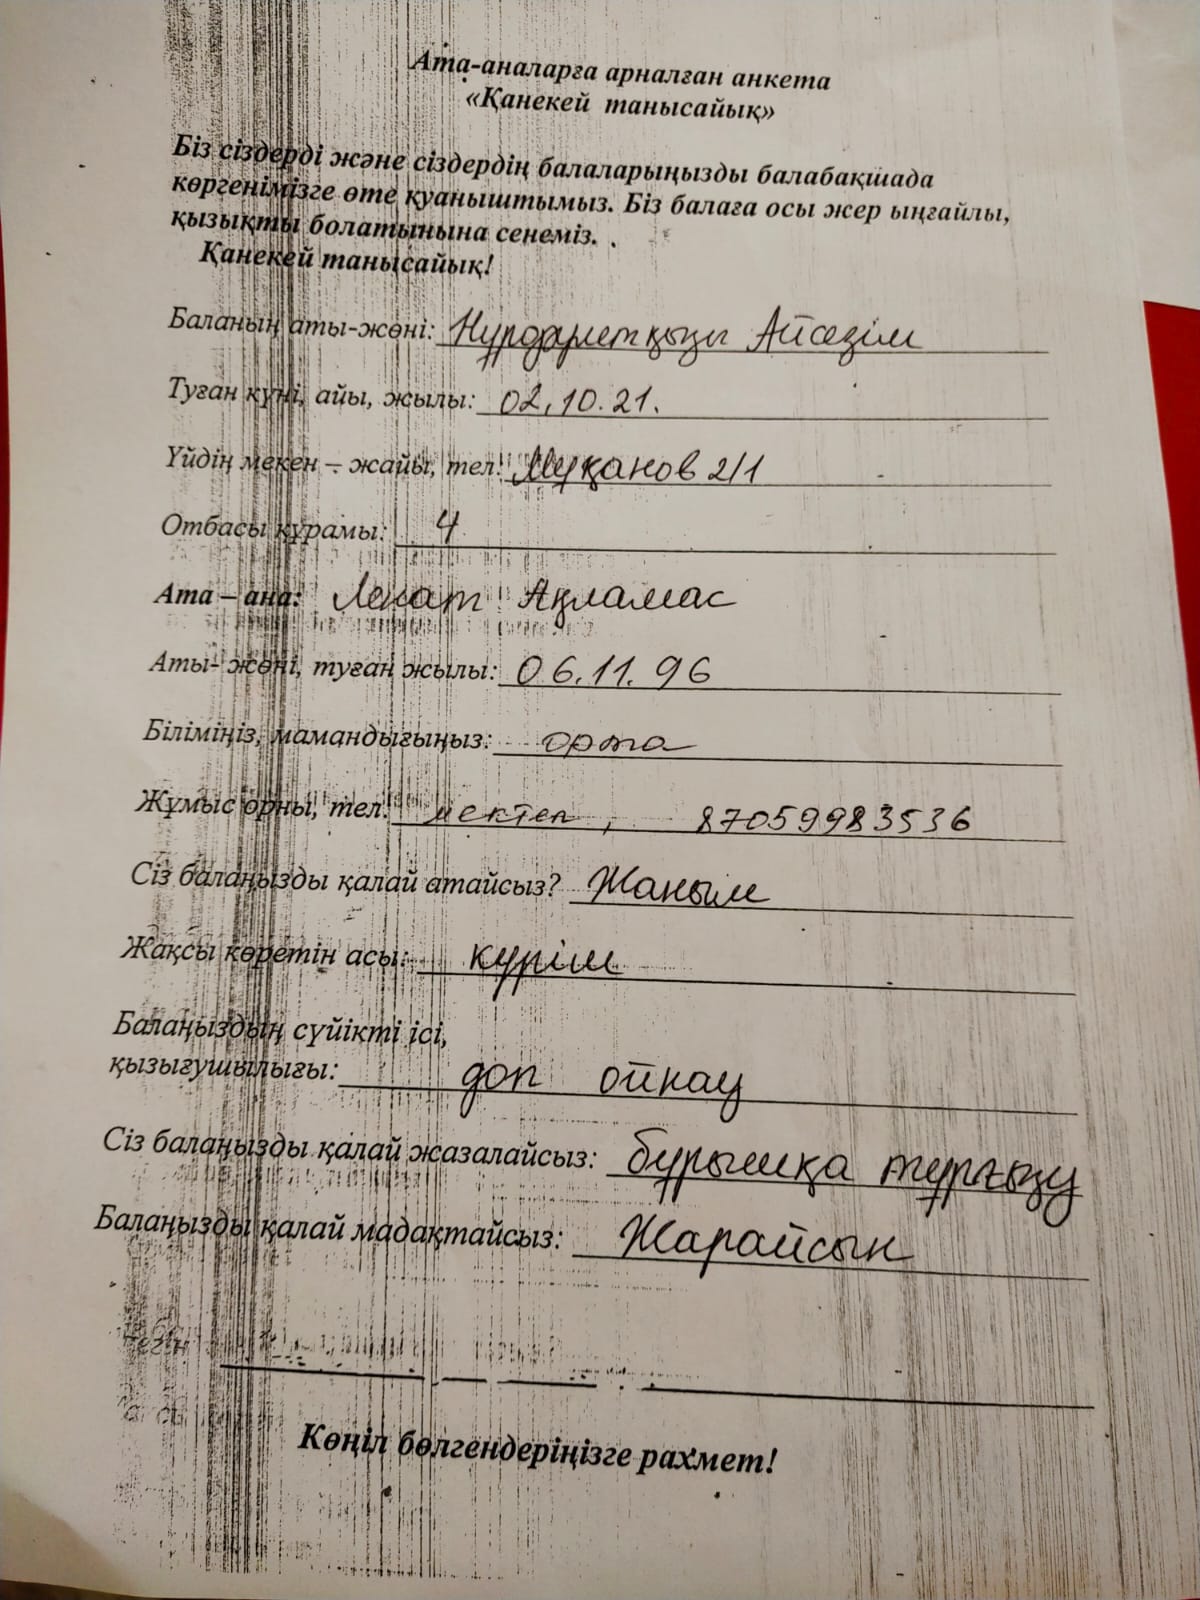 Ата-аналарға арналған анкета
«Қанекей танысайық»
Біз сіздерді және сіздердің балаларыңызды балабақшада
көргенімізге өте қуаныштымыз. Біз балаға осы жер ыңғайлы,
қызықты болатынына сенеміз. .
Қанекей танысайық!
Баланың аты-жөні: Нұрдәулетқызы Айсезім
Туған күні, айы, жылы: 02.10.21.
Үйдің мекен – жайы, тел: Мұқанов 2/1
Отбасы құрамы: 4
Ата – ана: Ақламас
Аты- жөні, туған жылы: 06.11.96
Біліміңіз, мамандығыңыз: орта
Жұмыс орны, тел: мектеп, 87059983536
Сіз балаңызды қалай атайсыз? Жаным
Жақсы көретін асы: күріш
Балаңыздың сүйікті ісі,
қызығушылығы: доп ойнау
Сіз балаңызды қалай жазалайсыз: бұрышқа тұрғызу
Балаңызды қалай мадақтайсыз: Жарайсын
Көңіл бөлгендеріңізге рахмет!